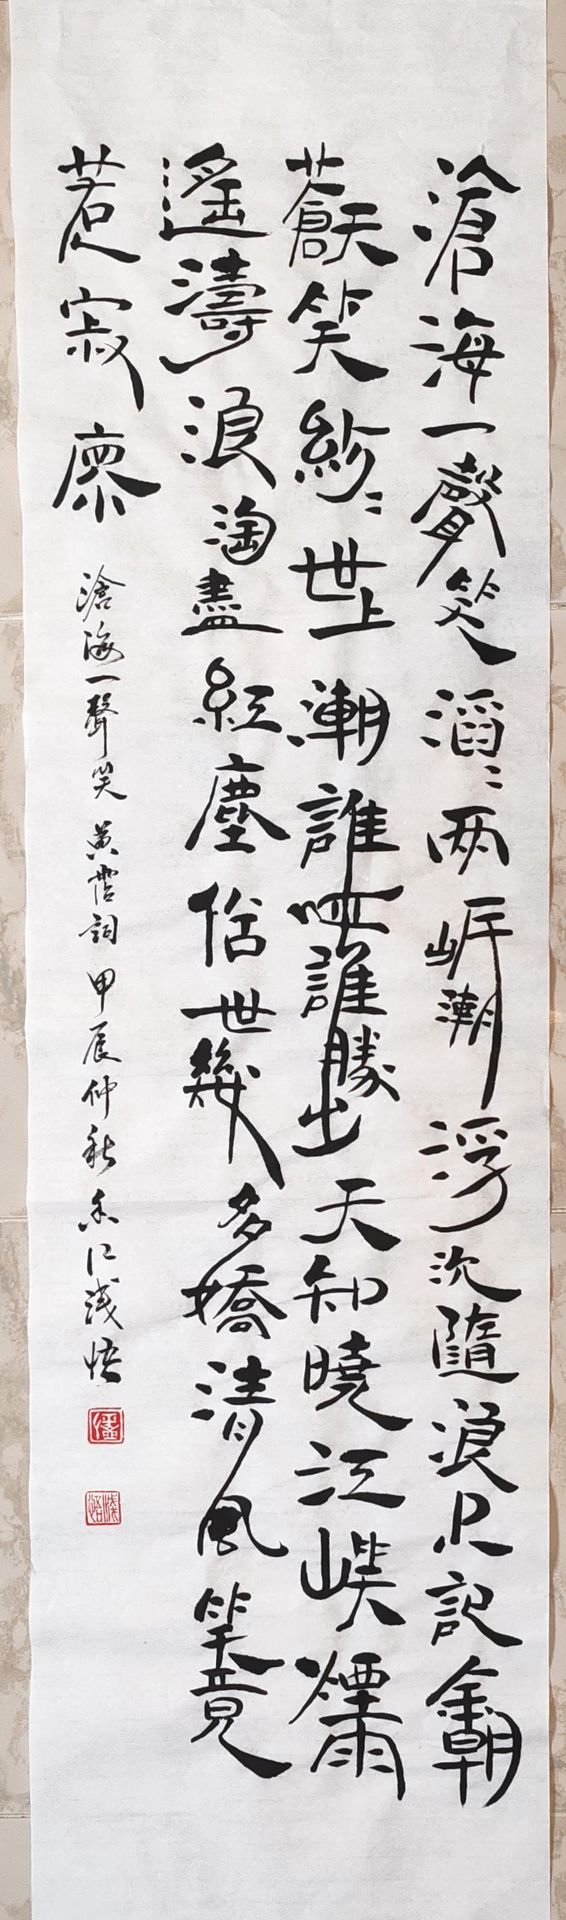 滄海一聲笑滔〻两岸潮浮沉隨浪只記今朝
蒼天笑紛〻世上潮誰負誰勝出天知曉江山笑煙雨
遙濤浪淘盡紅塵俗世幾多嬌清風笑竟
惹寂寥
滄海一聲笑黃霑詞甲辰仲秋浅悟